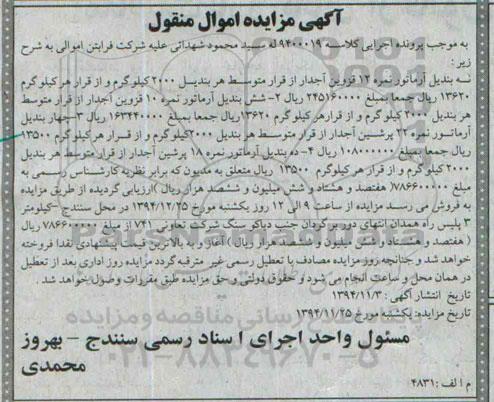 آگهی مزایده اموال منقول
به موجب پرونده اجرایی کلاسه ۹۴۰۰۰۱۹ له سید محمود شهدائی علیه شرکت فرابتن اموالی به شرح
زیر :
نه بندیل آرماتور نمره ۱۲ قزوین آجدار از قرار متوسط هر بندیل ۲۰۰۰ کیلو گرم و از قرار هر کیلو گرم
۱۳۶۲۰ ریال جمعا بمبلغ ۲۴۵۱۶۰۰۰۰ ریال ۲- شش بندیل آرماتور نمره ۱۰ قزوین آجدار از قرار متوسط
هر بندیل ۲۰۰۰ کیلو گرم و از قرارهر کیلو گرم ۱۳۶۲۰ریال جمعا بمبلغ ۱۶۳۴۴۰۰۰۰ ریال ۳-چهار بندیل
آرماتور نمره ۲۲ پرشین آجدار از قرار متوسط هر بندیل ۲۰۰۰کیلو گرم و از قرار هر کیلو گرم ۱۳۵۰۰
ریال جمعا بمبلغ ۱۰۸۰۰۰۰۰۰ ریال ۴- ده بندیل آرماتور نمره ۱۸ پرشین آجدار از قرار متوسط هر بندیل
۲۰۰۰ کیلو گرم و از قرار هر کیلوگرم ۱۳۵۰۰ ریال متعلق به مدیون که برابر نظریه کارشناس رسمی به
مبلغ ۷۸۶۶۰۰۰۰۰( هفتصد و هشتاد و شش میلیون و ششصد هزار ریال )ارزیابی گردیده از طریق مزایده
به فروش می رسد مزایده از ساعت ۹ الی ۱۲ روز یکشنبه مورخ ۱۳۹۴/۱۲/۲۵ در محل سنندج -کیلومتر
۳ پلیس راه همدان انتهای دور برگردان جنب دپاکو سنگ شرکت تعاونی ۷۴۱ از مبلغ ۷۸۶۶۰۰۰۰۰ ریال
( هفتصد و هشتاد و شش میلیون و ششصد هزار ریال) آغاز و به بالاترین قیمت پیشنهادی نقدا فروخته
خواهد شد و چنانچه روز مزایده مصادف با تعطیل رسمی غیر مترقبه گردد مزایده روز اداری بعد از تعطیل
در همان محل و ساعت انجام می شود و حقوق دولتی و حق مزایده طبق مقررات وصول خواهد شد .
تاریخ انتشار آگهی : ۱۳۹۴/۱۱/۳
تاریخ مزایده: یکشنبه مورخ ۱۳۹۴/۱۱/۲۵
مسئول واحد اجرای اسناد رسمی سنندج – بهروز
محمدی
م الف : ۴۸۳۱
رسانی مناقصه و مزایده
۰۲۱-۸۸۳۴۹۶۷۰-۵